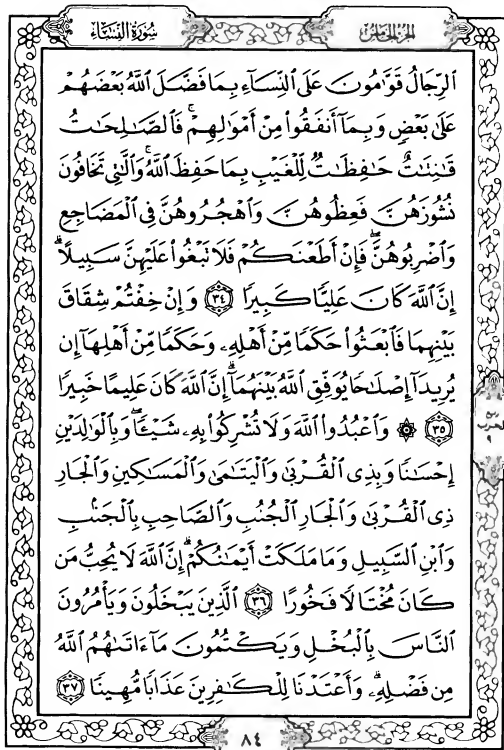 سُورَةُ النِّسَاءِ
الجزء الخامس
ٱلرِّجَالُ قَوَّٰمُونَ عَلَى ٱلنِّسَآءِ بِمَا فَضَّلَ ٱللَّهُ بَعْضَهُمْ
عَلَىٰ بَعْضٍ وَبِمَآ أَنفَقُوا۟ مِنْ أَمْوَٰلِهِمْ ۚ فَٱلصَّٰلِحَٰتُ
قَٰنِتَٰتٌ حَٰفِظَٰتٌ لِّلْغَيْبِ بِمَا حَفِظَ ٱللَّهُ ۚ وَٱلَّٰتِى تَخَافُونَ
نُشُوزَهُنَّ فَعِظُوهُنَّ وَٱهْجُرُوهُنَّ فِى ٱلْمَضَاجِعِ
وَٱضْرِبُوهُنَّ ۖ فَإِنْ أَطَعْنَكُمْ فَلَا تَبْغُوا۟ عَلَيْهِنَّ سَبِيلًا ۗ
إِنَّ ٱللَّهَ كَانَ عَلِيًّا كَبِيرًا ٣٤ وَإِنْ خِفْتُمْ شِقَاقَ
بَيْنِهِمَا فَٱبْعَثُوا۟ حَكَمًا مِّنْ أَهْلِهِۦ وَحَكَمًا مِّنْ أَهْلِهَآ إِن
يُرِيدَآ إِصْلَٰحًا يُوَفِّقِ ٱللَّهُ بَيْنَهُمَآ ۗ إِنَّ ٱللَّهَ كَانَ عَلِيمًا خَبِيرًا
٣٥ ۞ وَٱعْبُدُوا۟ ٱللَّهَ وَلَا تُشْرِكُوا۟ بِهِۦ شَيْـًٔا ۖ وَبِٱلْوَٰلِدَيْنِ
إِحْسَٰنًا وَبِذِى ٱلْقُرْبَىٰ وَٱلْيَتَٰمَىٰ وَٱلْمَسَٰكِينِ وَٱلْجَارِ
ذِى ٱلْقُرْبَىٰ وَٱلْجَارِ ٱلْجُنُبِ وَٱلصَّاحِبِ بِٱلْجَنۢبِ
وَٱبْنِ ٱلسَّبِيلِ وَمَا مَلَكَتْ أَيْمَٰنُكُمْ ۗ إِنَّ ٱللَّهَ لَا يُحِبُّ مَن
كَانَ مُخْتَالًا فَخُورًا ٣٦ ٱلَّذِينَ يَبْخَلُونَ وَيَأْمُرُونَ
ٱلنَّاسَ بِٱلْبُخْلِ وَيَكْتُمُونَ مَآ ءَاتَىٰهُمُ ٱللَّهُ
مِن فَضْلِهِۦ ۗ وَأَعْتَدْنَا لِلْكَٰفِرِينَ عَذَابًا مُّهِينًا ٣٧
٨٤